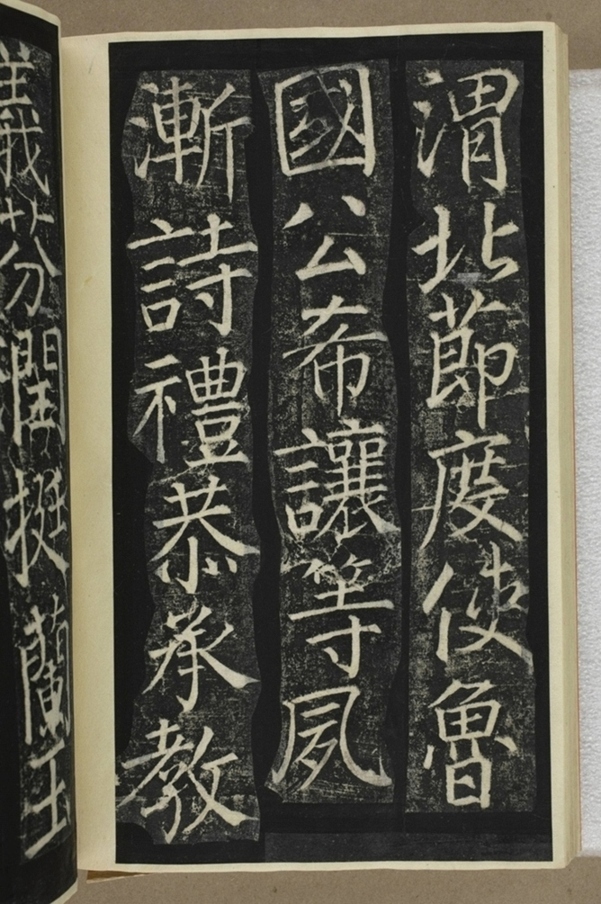 渭北節度使魯
國公希讓等夙
漸詩禮恭承教
義芬潤挺蘭玉